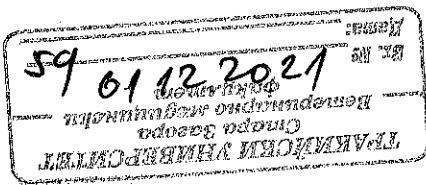 ТРАКИЙСКИ УНИВЕРСИТЕТ
Стара Загора
Ветеринарно медицински
факултет
Вх. №
Дата:
59 01 12 2021